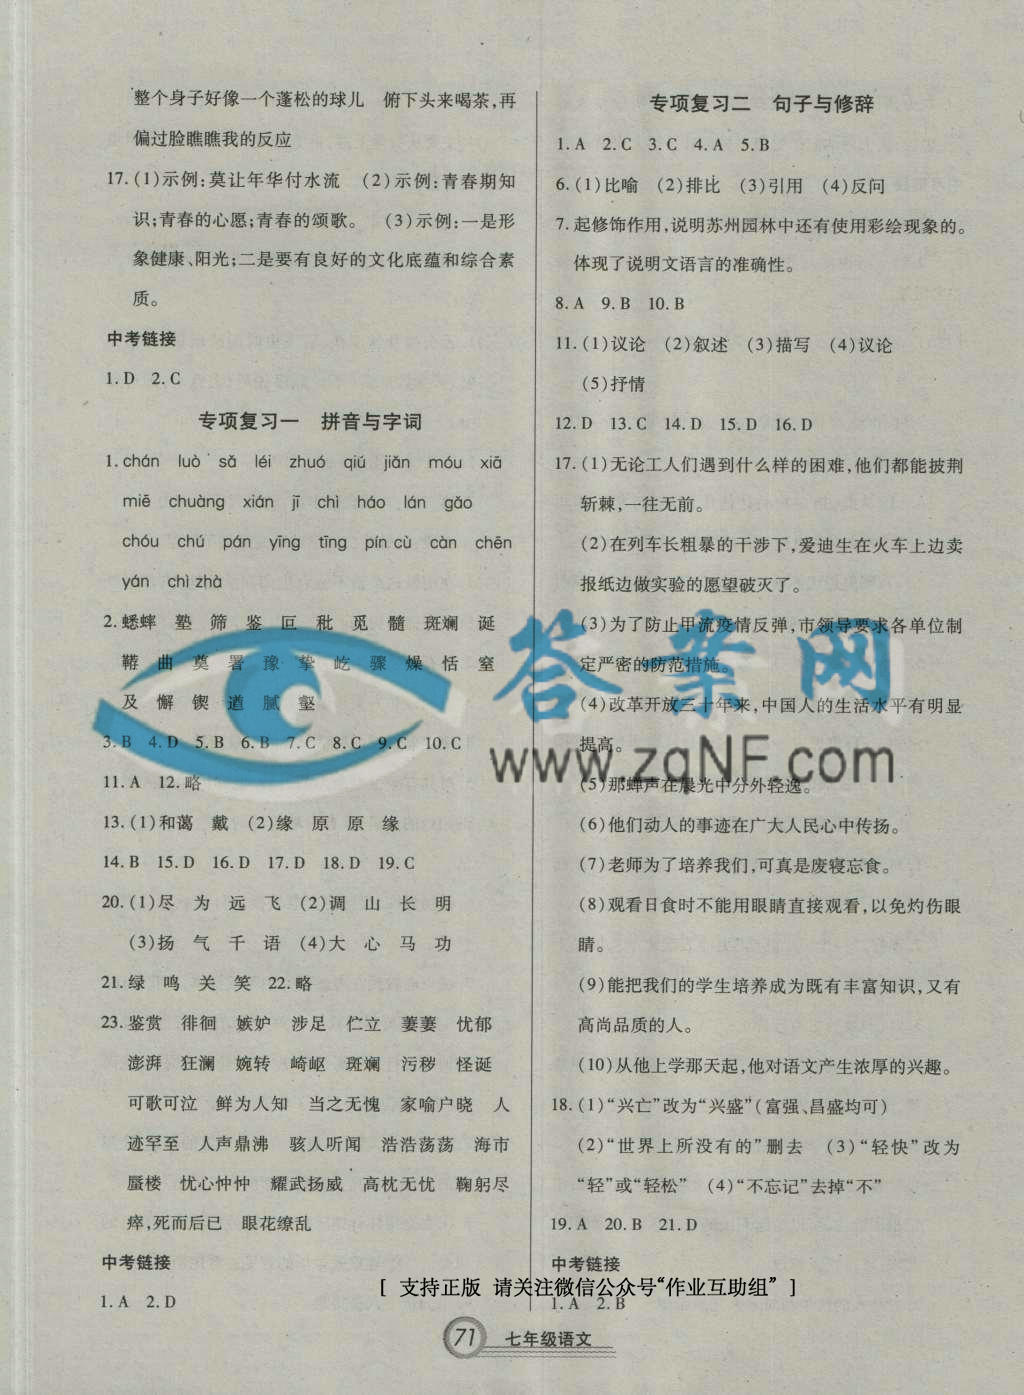 整个身子好像一个蓬松的球儿 俯下头来喝茶,再
偏过脸瞧瞧我的反应
17.(1)示例:莫让年华付水流 (2)示例:青春期知
识;青春的心愿;青春的颂歌。 (3)示例:一是形
象健康、阳光;二是要有良好的文化底蕴和综合素
质。
中考链接
1.D 2.C
专项复习一 拼音与字词
1.chán luò sǎ léi zhuó qiú jiǎn móu xiā
miē chuàng xián jī chì háo lán gǎo
chóu chú pán yīng tīng pín cù càn chēn
yán chì zhà
2.蟋蟀 塾 筛 鉴 叵 秕 觅 髓 斑斓 诞
鞯 曲 奠 署 豫 挚 屹 骤 燥 恬 窒
及 懈 锲 遒 腻 壑
3.B 4.D 5.B 6.B 7.C 8.C 9.C 10.C
11.A 12.略
13.(1)和蔼 戴 (2)缘 原 原 缘
14.B 15.D 16.D 17.D 18.D 19.C
20.(1)尽 为 远 飞 (2)调 山 长 明
(3)扬 气 千 语 (4)大 心 马 功
21.绿 鸣 关 笑 22.略
23.鉴赏 徘徊 嫉妒 涉足 伫立 萋萋 忧郁
澎湃 狂澜 婉转 崎岖 斑斓 污秽 怪诞
可歌可泣 鲜为人知 当之无愧 家喻户晓 人
迹罕至 人声鼎沸 骇人听闻 浩浩荡荡 海市
蜃楼 忧心忡忡 耀武扬威 高枕无忧 鞠躬尽
瘁,死而后已 眼花缭乱
中考链接
1.A 2.D
专项复习二 句子与修辞
1.A 2.C 3.C 4.A 5.B
6.(1)比喻 (2)排比 (3)引用 (4)反问
7.起修饰作用,说明苏州园林中还有使用彩绘现象的。
体现了说明文语言的准确性。
8.A 9.B 10.B
11.(1)议论 (2)叙述 (3)描写 (4)议论
(5)抒情
12.D 13.C 14.D 15.D 16.D
17.(1)无论工人们遇到什么样的困难,他们都能披荆
斩棘,一往无前。
(2)在列车长粗暴的干涉下,爱迪生在火车上边卖
报纸边做实验的愿望破灭了。
(3)为了防止甲流疫情反弹,市领导要求各单位制
定严密的防范措施。
(4)改革开放三十年来,中国人的生活水平有明显
提高。
(5)那蝉声在晨光中分外轻逸。
(6)他们动人的事迹在广大人民心中传扬。
(7)老师为了培养我们,可真是废寝忘食。
(8)观看日食时不能用眼睛直接观看,以免灼伤眼
睛。
(9)能把我们的学生培养成为既有丰富知识,又有
高尚品质的人。
(10)从他上学那天起,他对语文产生浓厚的兴趣。
18.(1)“兴亡”改为“兴盛”(富强、昌盛均可)
(2)“世界上所没有的”删去 (3)“轻快”改为
“轻”或“轻松” (4)“不忘记”去掉“不”
19.A 20.B 21.D
中考链接
1.A 2.B
答案网
www.zqNF.com
[ 支持正版 请关注微信公众号“作业互助组” ]
71 七年级语文